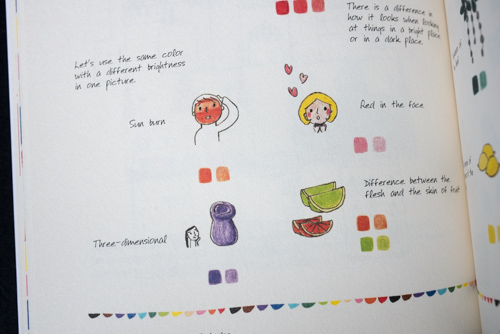 There is a difference in
how it looks when looking
at things in a bright place
or in a dark place.
Let's use the same color
with a different brightness
in one picture.
Sun burn
Red in the face
Difference between the
flesh and the skin of fruit
Three-dimensional